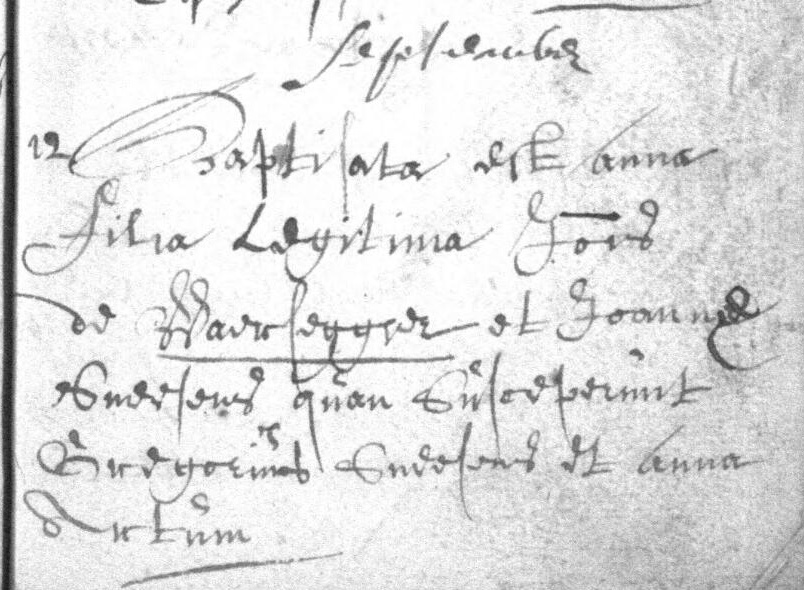 September
12 Baptisata est Anna
Filia Legitima Joõis
de Waersegger et Joannae
Snersens quam Susceperunt
Gregorius Snersens et Anna